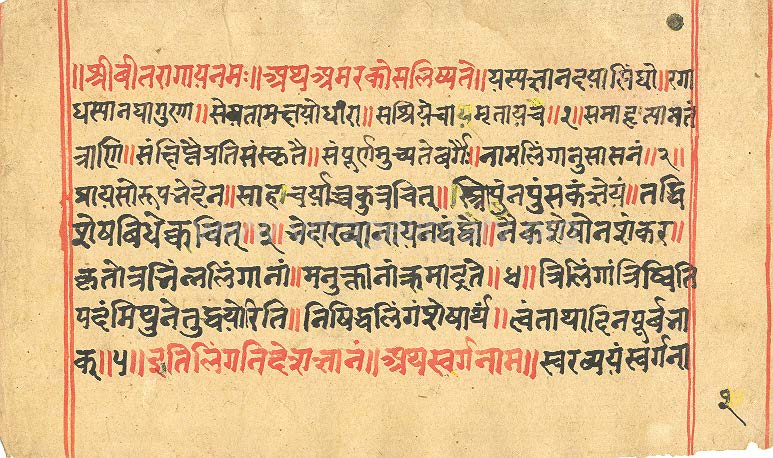 ॥श्रीवीतरागायनमः॥अथअमरकोसलिष्यते॥यस्यज्ञानदयासिंधो॥रगा
धस्यानघागुणा॥सेव्यतामक्षयोधीरा॥सश्रियेचामृतायच॥१॥समाहृत्यान्यतं
त्राणि॥संक्षिप्तैप्रतिसंस्कृतै॥संपूर्णमुच्यतेवर्गै॥नामलिंगानुसासनं॥२॥
प्रायसोरूपभेदेन॥साहचर्याच्चकुत्रचित्॥स्त्रिपुंनपुंसकंज्ञेयं॥तद्वि
शेषविधेक्वचित्॥३॥भेदाख्यानायनद्वंद्वो॥नैकशेषोनशंकर॥
कृतोत्रभिन्नलिंगानां॥मनुक्तानांक्रमादृते॥४॥त्रिलिंगांत्रिष्विति
पदंमिथुनेतुद्वयोरिति॥निषिद्धलिंगंशेषार्थं॥त्वंताथादिनपूर्वभा
क्॥५॥इतिलिंगनिदेशज्ञानं॥अथस्वर्गनाम॥स्वरव्ययंस्वर्गना